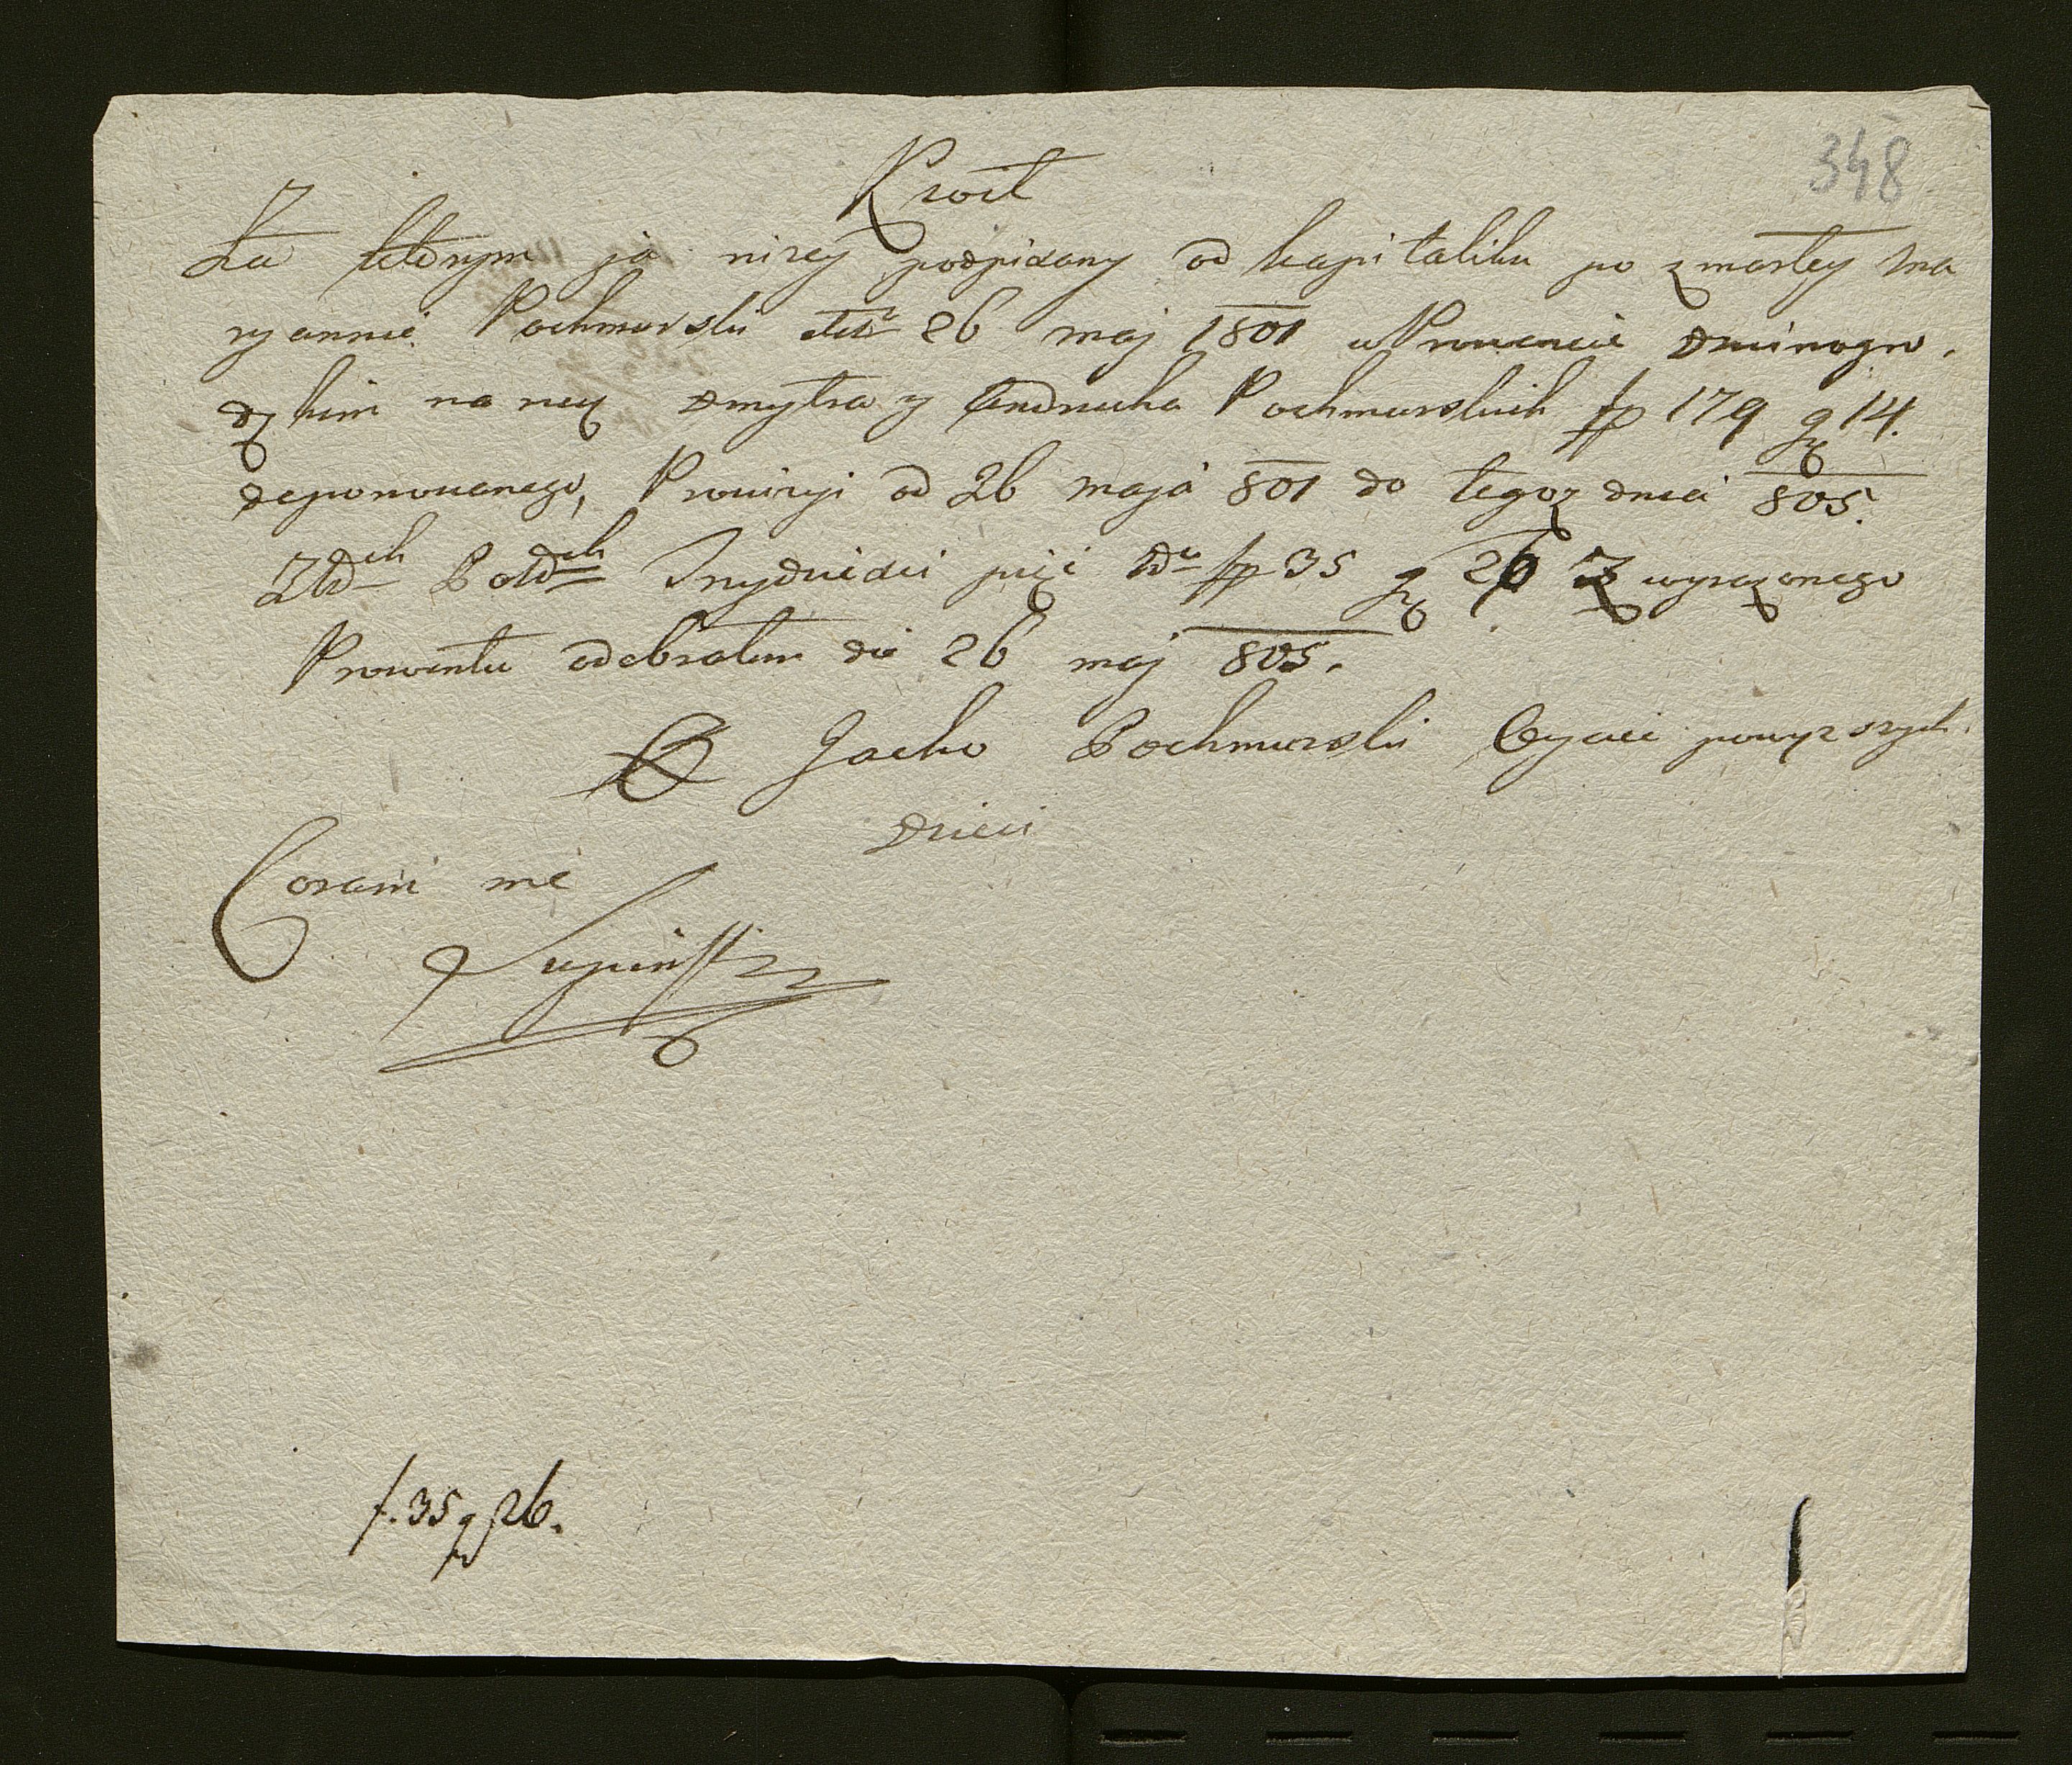 348
Kwit
Za którym ja niżej podpisany od kapitaliku po zmarłey Ma
ryannie Pochmurski 26 maj 1801 w Prowencie Dminogro,
dzkim na rzecz Dmytra y Andrucha Pochmurskich fp 179 gr 14.
deponowanego, Prowizyi od 26 maja 801 do tegoż dnia 805.
Złotych Polskich Trzydzieści pięć fp 35 gr 26 Z wyrażonego
Prowentu odebrałem die 26 maj 805.
Jacko Pochmurski Oyciec powyższych
Dzieci
Coram me
f. 35 gr 26.